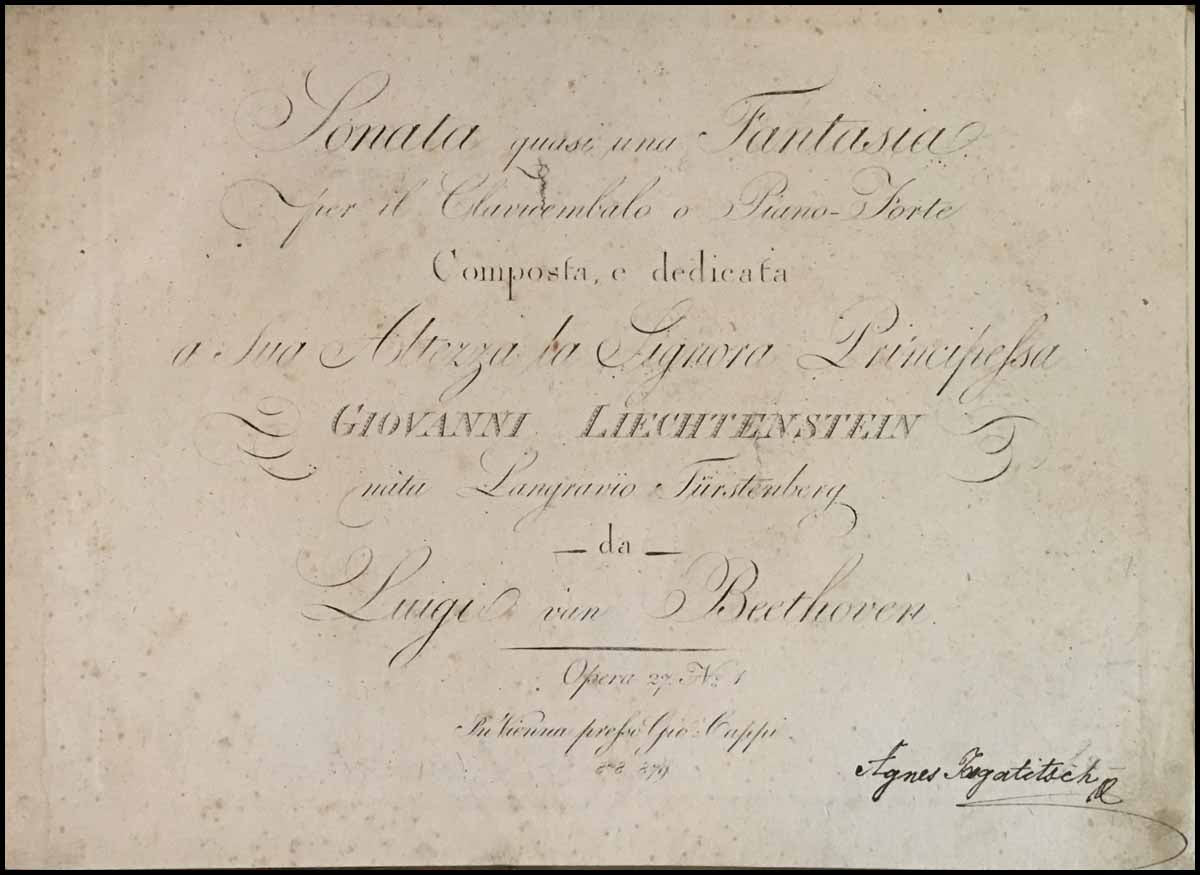 Sonata quasi una Fantasia
per il Clavicembalo o Piano-Forte
Composta, e dedicata
a Sua Altezza la Signora Principeſsa
GIOVANNI LIECHTENSTEIN
nata Langravio Fürstenberg
— da —
Luigi van Beethoven.
Opera 27. No. 1
In Vienna preſso Gio. Cappi.
878. 879.
Agnes